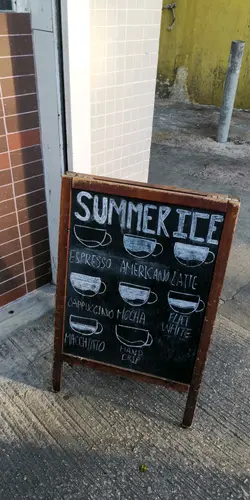 SUMMER ICE
ESPRESSO AMERICANO LATTE
CAPPUCINO MOCHA FLAT WHITE
MACCHIATO HAND DRIP